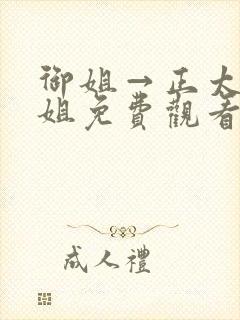 御姐→正大
姐免費觀看
成人禮